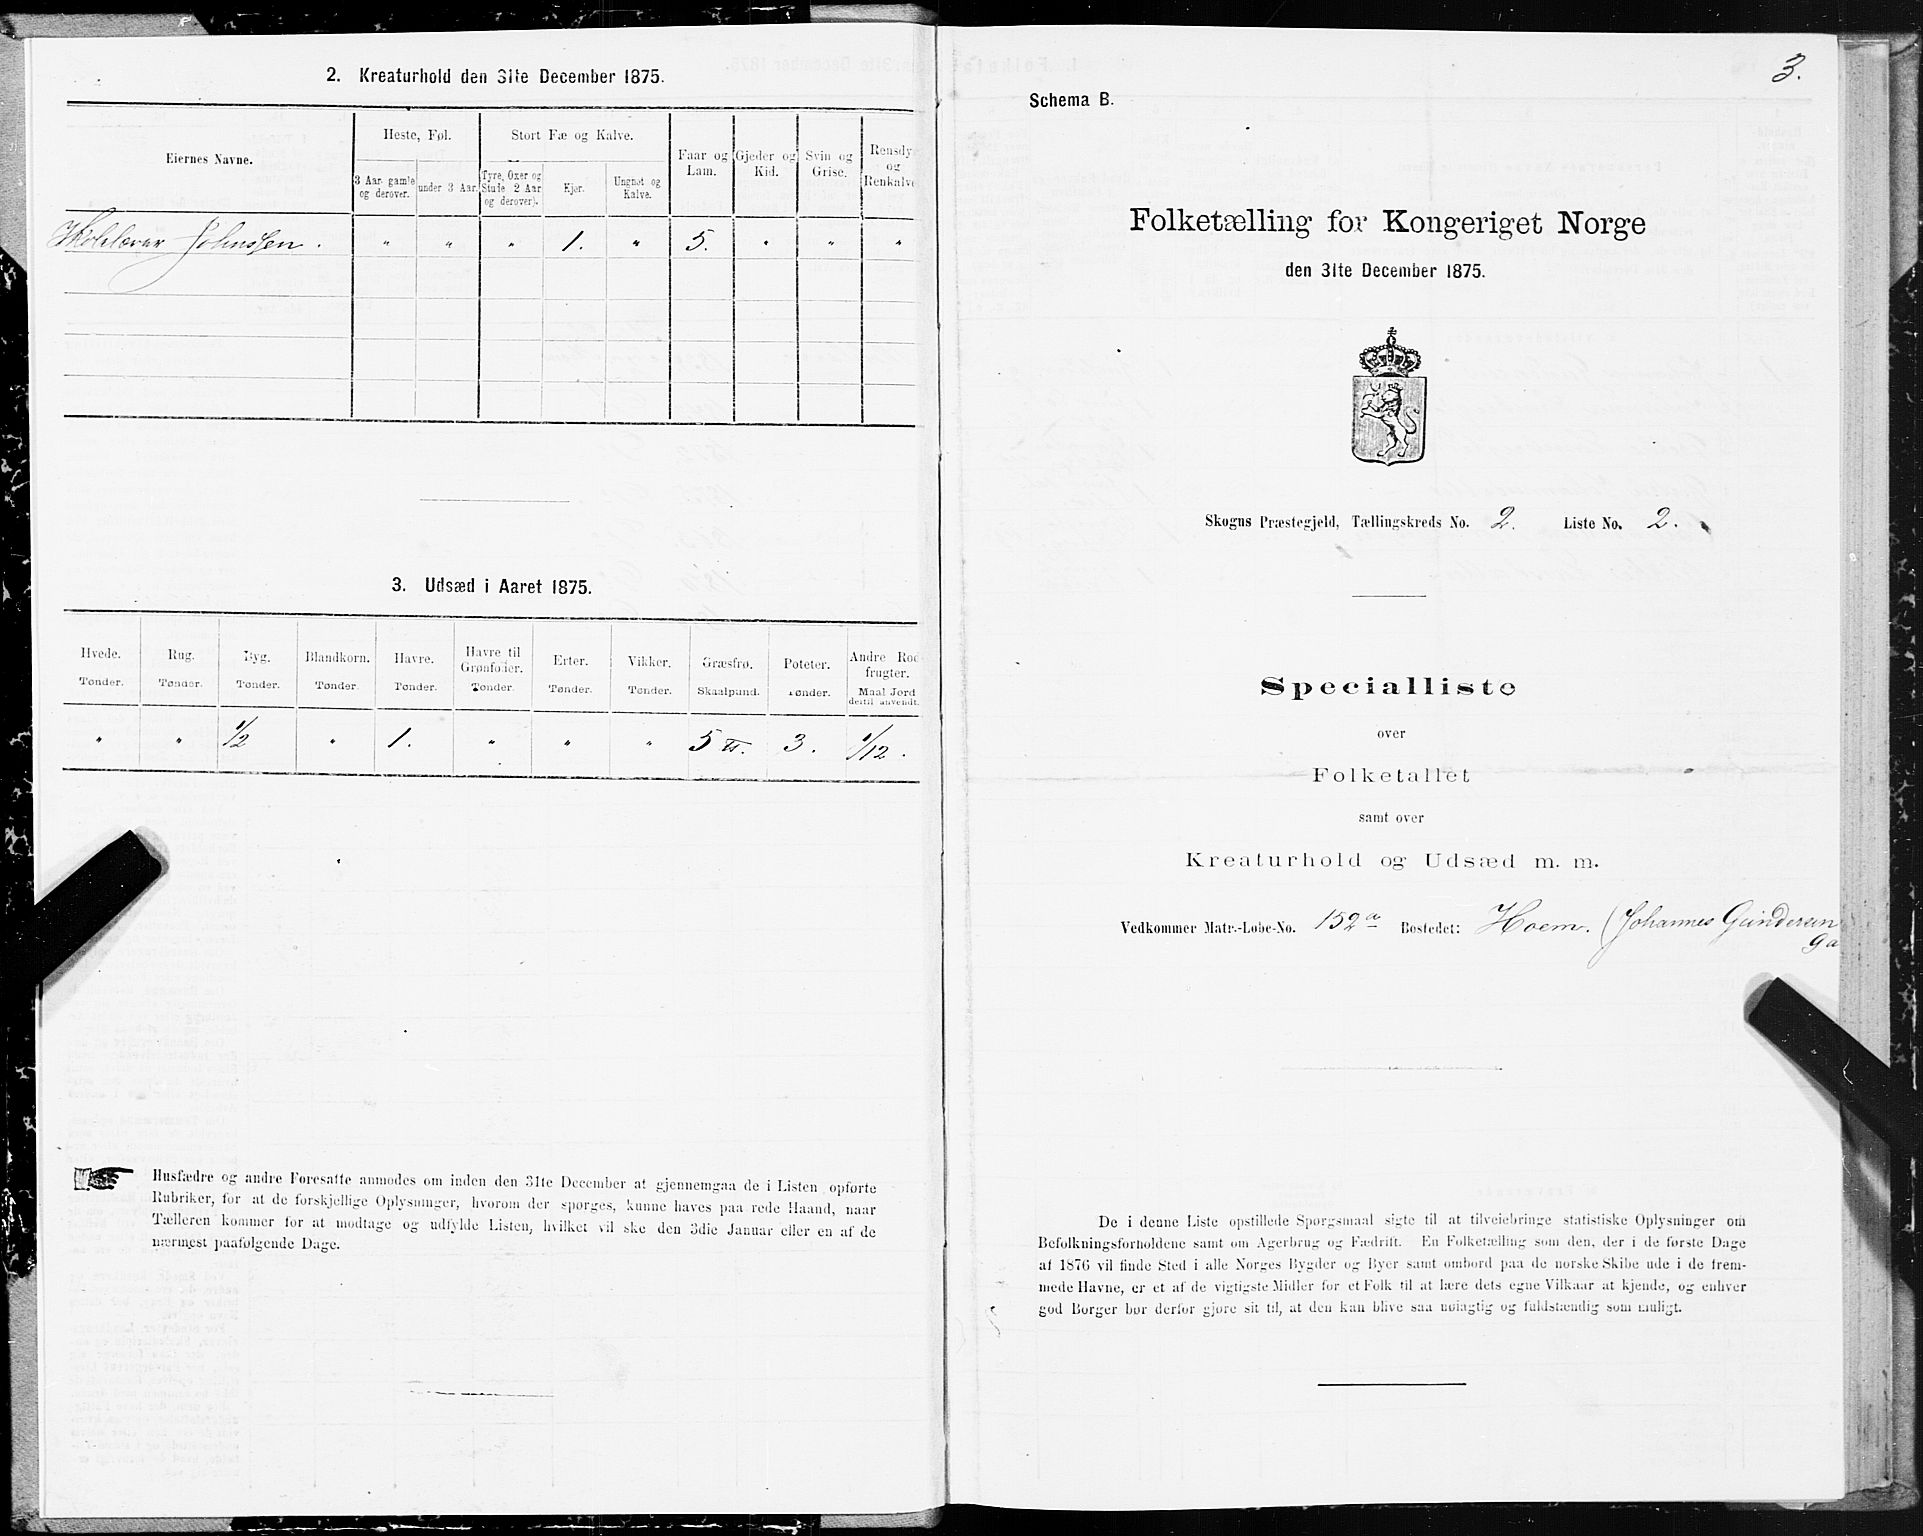 2. Kreaturhold den 31te December 1875.
Eiernes Navne.
Heste, Føl.
Stort Fæ og Kalve.
Faar og Lam.
Gjeder og Kid.
Svin og Grise.
Rensdy og Renkalve
3 Aar gamle og derover.
under 3 Aar.
Tyre, Oxer og Stude (2 Aar og derover).
Kjør.
Ungnøt og Kalve.
Skolelærer Johnssen. " " " 1. " 5. " " "
3. Udsæd i Aaret 1875.
Hvede. Rug. Byg. Blandkorn. Havre. Havre til Grønfoder. Erter. Vikker. Græsfrø. Poteter. Andre Rod frugter.
Tønder. Tønder. Tønder. Tønder. Tønder. Tønder. Tønder. Tønder. Skaalpund. Tønder. Maal Jord dertil anvendt.
" " 1/2 " 1. " " " 5 ℔. 3. 1/12.
Husfædre og andre Foresatte anmodes om inden den 31te December at gjennemgaa de i Listen opførte
Rubriker, for at de forskjellige Oplysninger, hvorom der spørges, kunne haves paa rede Haand, naar
Tælleren kommer for at modtage og udfylde Listen, hvilket vil ske den 3die Januar eller en af de
nærmest paafølgende Dage.
3.
Schema B.
Folketælling for Kongeriget Norge
den 31te December 1875.
Skogns Præstegjeld, Tællingskreds No. 2. Liste No. 2.
Specialliste
over
Folketallet
samt over
Kreaturhold og Udsæd m. m.
Vedkommer Matr.-Løbe-No. 152a Bostedet: Hoem. (Johannes Gundersen
Ga
De i denne Liste opstillede Spørgsmaal sigte til at tilveiebringe statistiske Oplysninger om
Befolkningsforholdene samt om Agerbrug og Fædrift. En Folketælling som den, der i de første Dage
af 1876 vil finde Sted i alle Norges Bygder og Byer samt ombord paa de norske Skibe ude i de frem-
mede Havne, er et af de vigtigste Midler for et Folk til at lære dets egne Vilkaar at kjende, og enhver
god Borger bør derfor gjøre sit til, at den kan blive saa nøiagtig og fuldstændig som muligt.